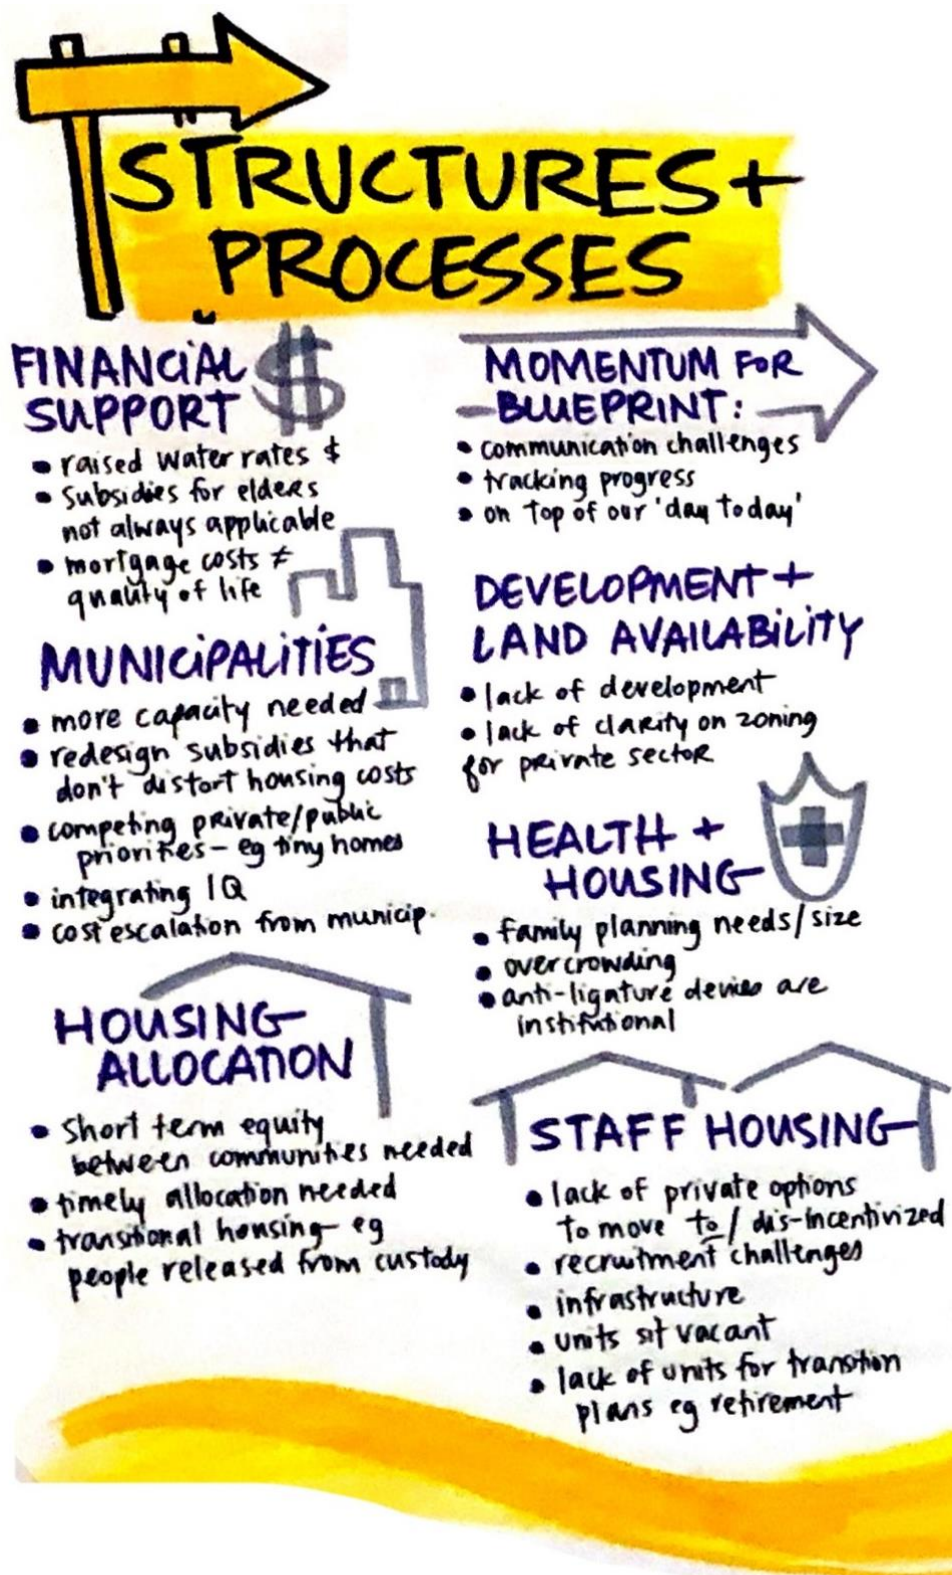 STRUCTURES +
PROCESSES
FINANCIAL $
SUPPORT
• raised water rates $
• subsidies for elders
not always applicable
• mortgage costs ≠
quality of life
MUNICIPALITIES
• more capacity needed
• redesign subsidies that
don't distort housing costs
• competing private/public
priorities - eg tiny homes
• integrating IQ
• cost escalation from municip.
HOUSING
ALLOCATION
• short term equity
between communities needed
• timely allocation needed
• transitional housing eg
people released from custody
MOMENTUM FOR
BLUEPRINT:
• communication challenges
• tracking progress
• on top of our 'day today'
DEVELOPMENT +
LAND AVAILABILITY
• lack of development
• lack of clarity on zoning
for private sector
HEALTH +
HOUSING
• family planning needs/size
• overcrowding
• anti-ligature devices are
institutional
STAFF HOUSING
• lack of private options
to move to / dis-incentivized
• recruitment challenges
• infrastructure
• units sit vacant
• lack of units for transition
plans eg retirement